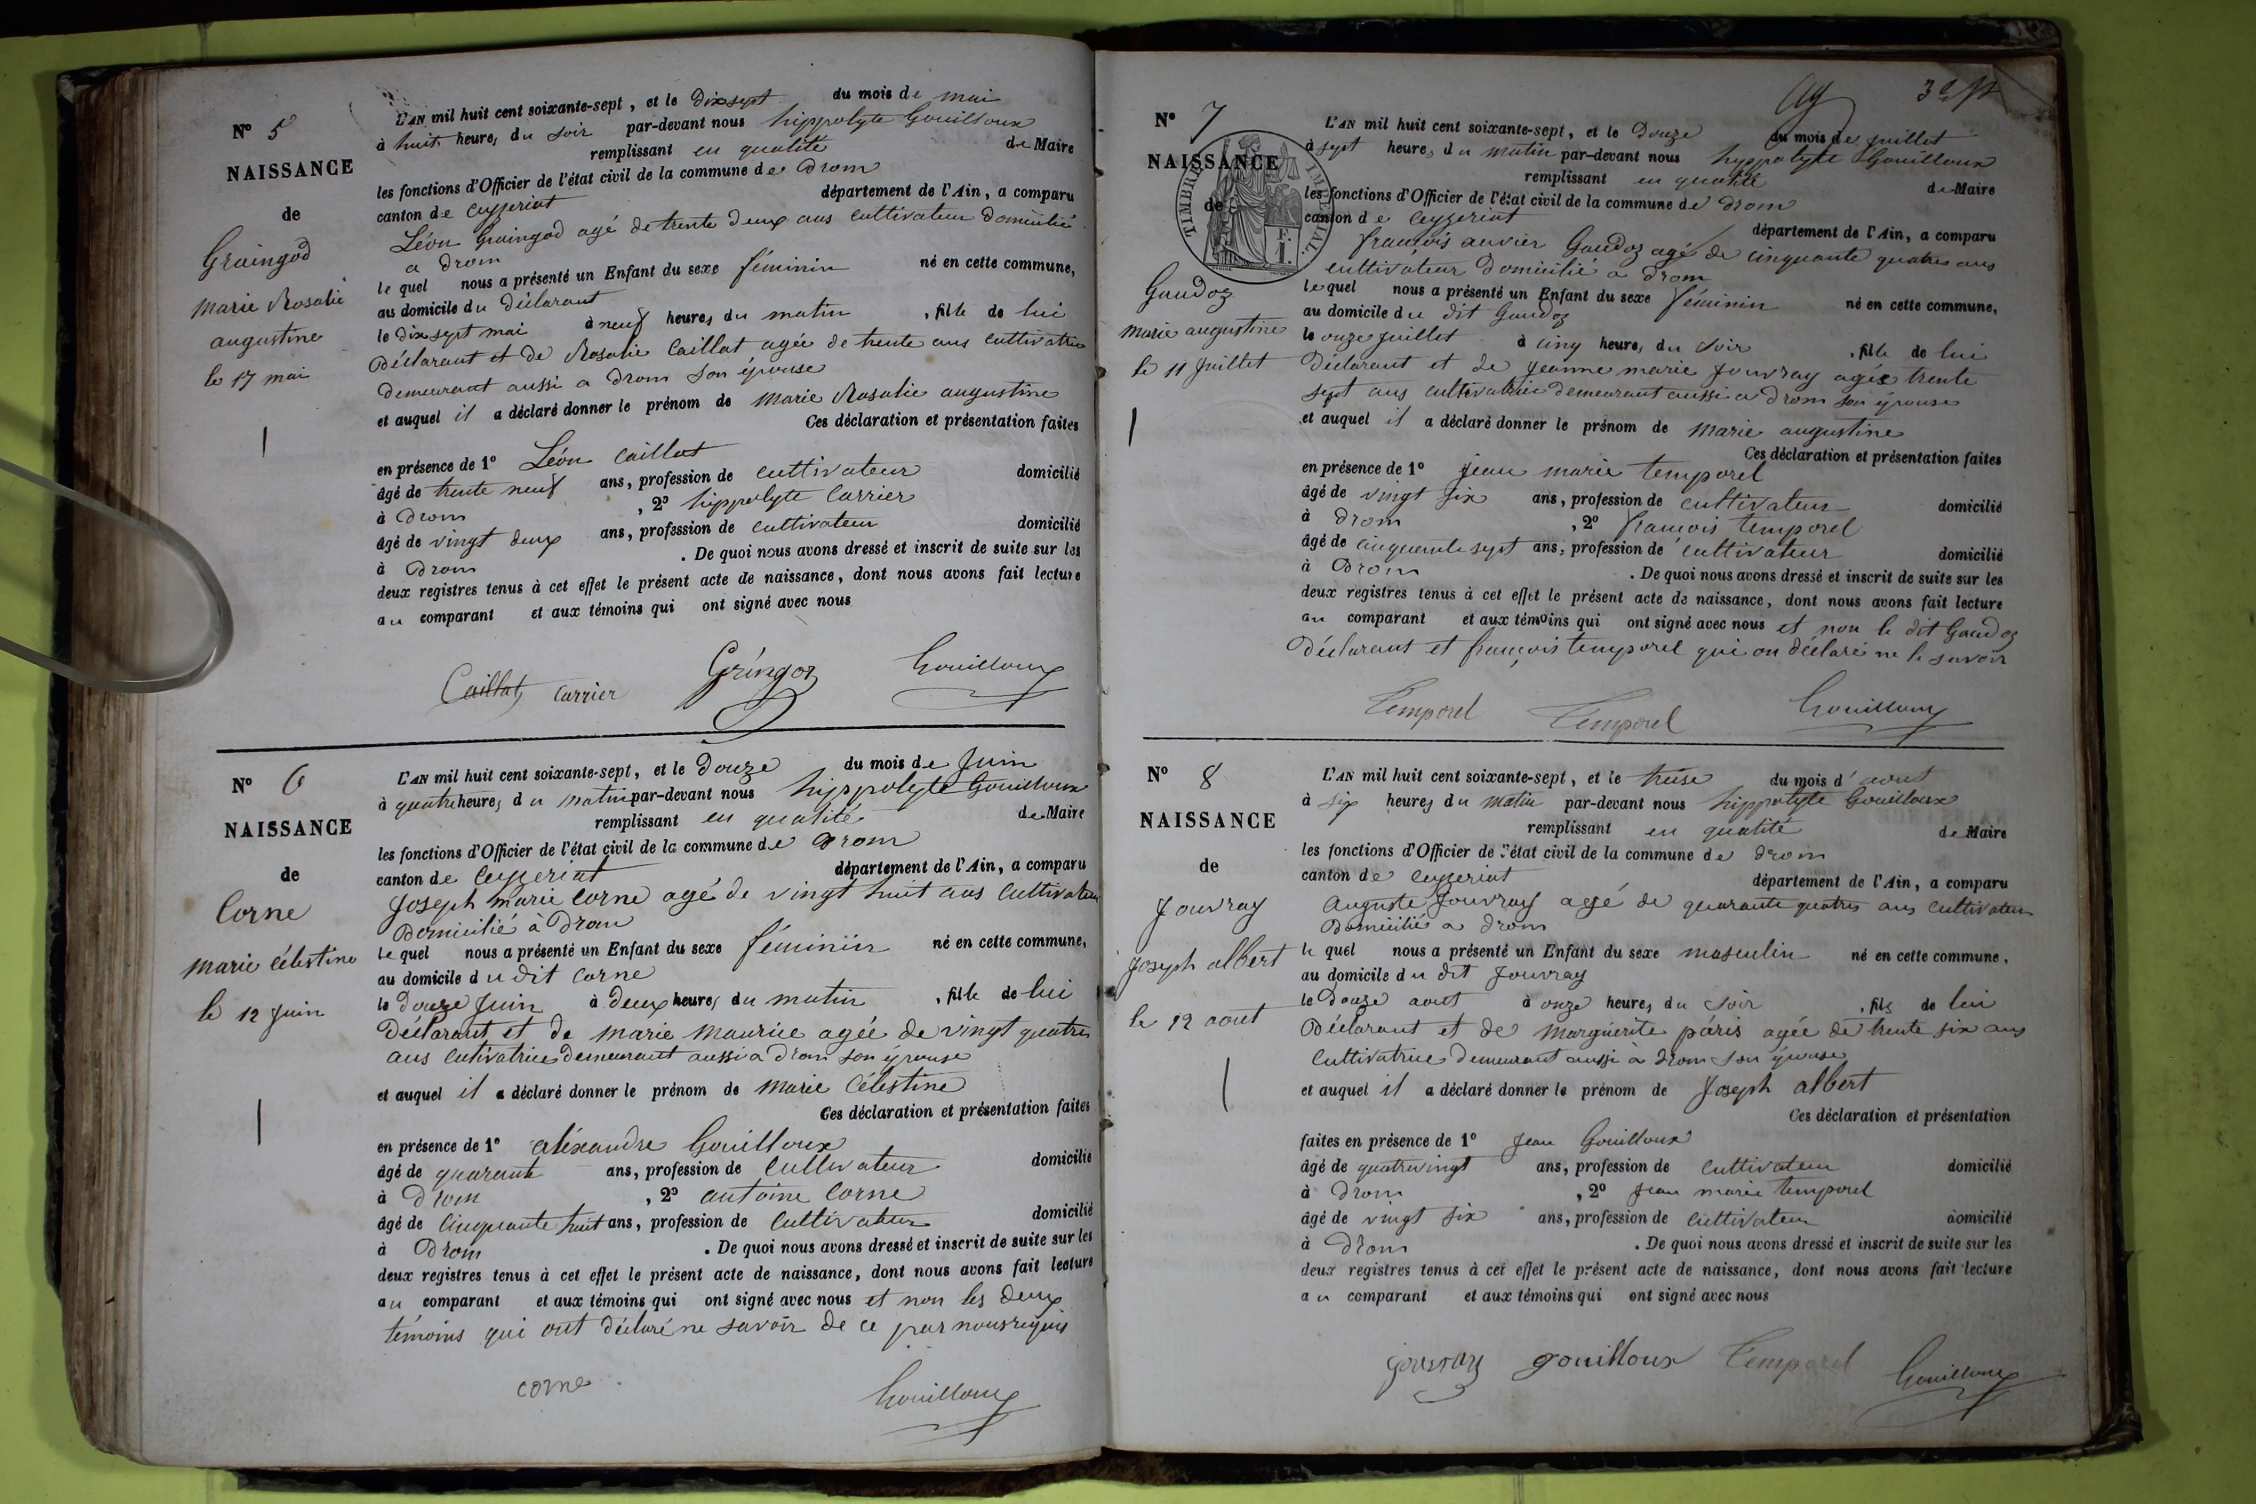 N° 5
NAISSANCE
de
Graingod
marie Rosalie
augustine
le 17 mai
L'AN mil huit cent soixante-sept, et le dix sept du mois de mai
à huit heures du soir par-devant nous hippolyte Gouilloux
remplissant en qualité de Maire
les fonctions d'Officier de l'état civil de la commune de Drom
canton de Ceyzeriat département de l'Ain, a comparu
Léon Graingod agé de trente deux ans cultivateur domicilié
a drom
le quel nous a présenté un Enfant du sexe féminin né en cette commune,
au domicile du déclarant
le dix sept mai à neuf heures du matin, fille de lui
Déclarant et de Rosalie Caillat agée de trente ans cultivatrice
demeurant aussi a drom son épouse
et auquel il a déclaré donner le prénom de marie Rosalie augustine
Ces déclaration et présentation faites
en présence de 1° Léon Caillat
âgé de trente neuf ans, profession de cultivateur domicilié
à Drom, 2° hippolyte Carrier
âgé de vingt deux ans, profession de cultivateur domicilié
à Drom. De quoi nous avons dressé et inscrit de suite sur les
deux registres tenus à cet effet le présent acte de naissance, dont nous avons fait lecture
au comparant et aux témoins qui ont signé avec nous
Caillat Carrier Gringoz Gouilloux
N° 6
NAISSANCE
de
Corne
marie célestine
le 12 juin
L'AN mil huit cent soixante-sept, et le douze du mois de Juin
à quatre heures du matin par-devant nous hippolyte Gouilloux
remplissant en qualité de Maire
les fonctions d'Officier de l'état civil de la commune de Drom
canton de Ceyzeriat département de l'Ain, a comparu
Joseph marie Corne agé de vingt huit ans Cultivateur
Domicilié à Drom
le quel nous a présenté un Enfant du sexe féminin né en cette commune,
au domicile du dit Corne
le douze Juin à deux heures du matin, fille de lui
Déclarant et de marie maurice agée de vingt quatre
ans cutivatrice demeurant aussi a drom son épouse
et auquel il a déclaré donner le prénom de marie Célestine
Ces déclaration et présentation faites
en présence de 1° aléxandre Gouilloux
âgé de quarante ans, profession de Cultivateur domicilié
à Drom, 2° antoine Corne
âgé de Cinquante huit ans, profession de Cultivateur domicilié
à Drom. De quoi nous avons dressé et inscrit de suite sur les
deux registres tenus à cet effet le présent acte de naissance, dont nous avons fait lecture
au comparant et aux témoins qui ont signé avec nous et non les deux
témoins qui ont déclaré ne savoir de ce par nous requis
corne Gouilloux
N° 7
NAISSANCE
de
TIMBRE IMPERIAL
1 F.
Gaudoz
marie augustine
le 11 Juillet
L'AN mil huit cent soixante-sept, et le Douze du mois de Juillet
à sept heures du matin par-devant nous hyppolyte Gouilloux
remplissant en qualité de Maire
les fonctions d'Officier de l'état civil de la commune de Drom
canton de Ceyzeriat département de l'Ain, a comparu
françois Gaudoz agé de cinquante quatre ans
cultivateur domicilié a Drom
le quel nous a présenté un Enfant du sexe féminin né en cette commune,
au domicile du dit Gaudoz
le onze juillet à cinq heures du soir, fille de lui
Déclarant et de Jeanne marie Jouvray agée trente
sept ans cultivatrice demeurant aussi a Drom son épouse
et auquel il a déclaré donner le prénom de marie augustine
Ces déclaration et présentation faites
en présence de 1° jean marie temporel
âgé de vingt six ans, profession de cultivateur domicilié
à Drom, 2° françois temporel
âgé de cinquante sept ans, profession de cultivateur domicilié
à Drom. De quoi nous avons dressé et inscrit de suite sur les
deux registres tenus à cet effet le présent acte de naissance, dont nous avons fait lecture
au comparant et aux témoins qui ont signé avec nous et non le dit Gaudoz
Déclarant et françois temporel qui on déclaré ne le savoir
Temporel Temporel Gouilloux
N° 8
NAISSANCE
de
Jouvray
Joseph albert
le 12 aout
L'AN mil huit cent soixante-sept, et le treise du mois d'aout
à six heures du matin par-devant nous hippolyte Gouilloux
remplissant en qualité de Maire
les fonctions d'Officier de l'état civil de la commune de drom
canton de Ceyzeriat département de l'Ain, a comparu
Auguste Jouvray agé de quarante quatre ans cultivateur
Domicilié a drom
le quel nous a présenté un Enfant du sexe masculin né en cette commune,
au domicile du dit Jouvray
le Douze aout à onze heures du soir, fils de lui
Déclarant et de marguerite páris agée de trente six ans
Cultivatrice demeurant aussi à drom son épouse
et auquel il a déclaré donner le prénom de Joseph albert
Ces déclaration et présentation
faites en présence de 1° Jean Gouilloux
âgé de quatrevingt ans, profession de cultivateur domicilié
à Drom, 2° Jean marie temporel
âgé de vingt six ans, profession de Cultivateur domicilié
à Drom. De quoi nous avons dressé et inscrit de suite sur les
deux registres tenus à cet effet le présent acte de naissance, dont nous avons fait lecture
au comparant et aux témoins qui ont signé avec nous
jouvray gouilloux Temporel Gouilloux